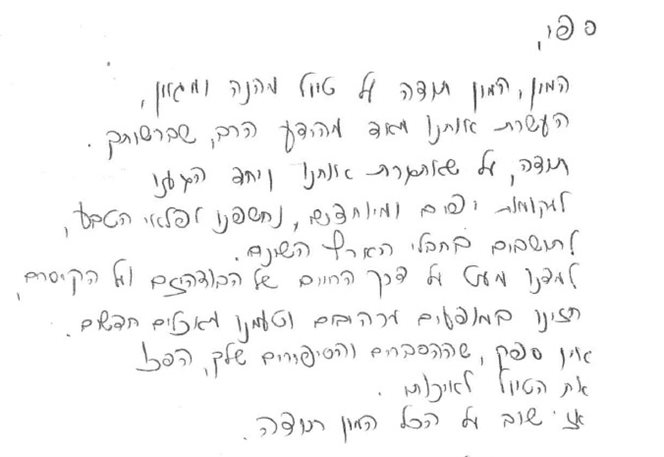 ספי,
המון, המון תודה על טיול מהנה ומגוון,
העשרת אותנו מאד מהידע הרב, שברשותך.
תודה, על שאתגרת אותנו ויחד הגענו
למקומות יפים ומיוחדים, נחשפנו לפלאי הטבע,
לתושבים בחבלי הארץ השונים.
למדנו מעט על דרך החיים של הבודהיזם ועל הקיסרים,
חזינו במופעים מרהיבים וטעמנו מאכלים חדשים.
אין ספק, שההסברים והסיפורים שלך, הפכו
את הטיול לאיכותי.
אז שוב על הכל המון תודה.